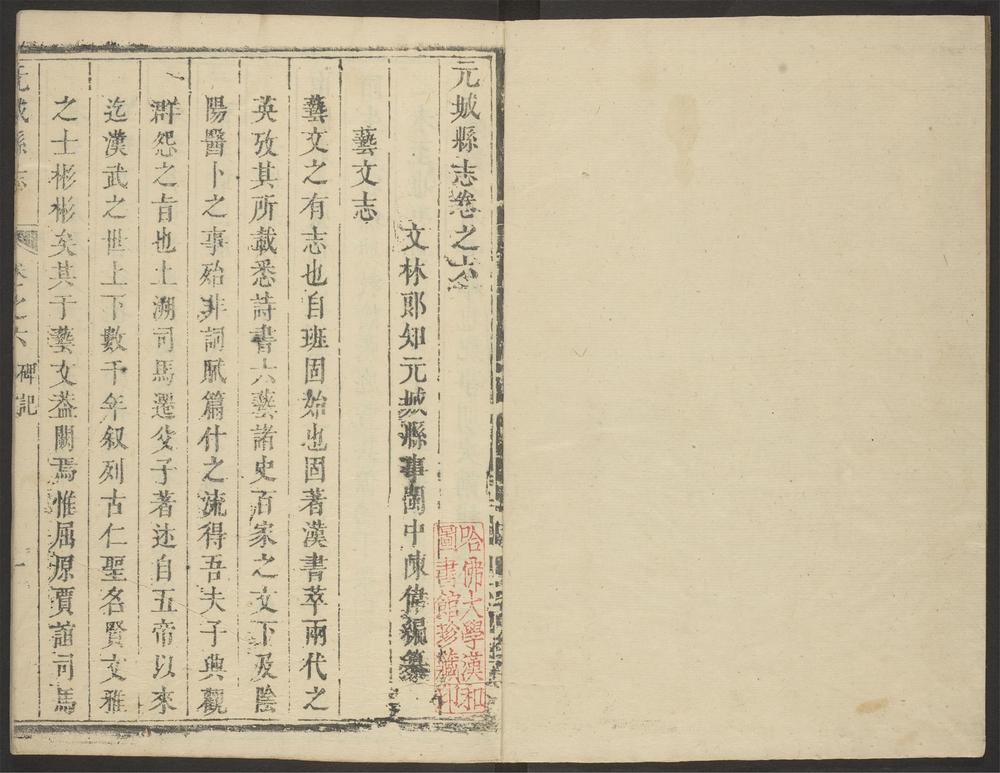 元城縣志卷之六
文林郎知元城縣事閩中陳偉編纂
藝文志
藝文之有志也自班固始也固著漢書萃兩代之
英攷其所載悉詩書六藝諸史百家之文下及陰
陽醫卜之事殆非詞賦篇什之流得吾夫子興觀
群怨之旨也上溯司馬遷父子著述自五帝以來
迄漢武之世上下數千年叙列古仁聖名賢文雅
之士彬彬矣其于藝文葢闕焉惟屈原賈誼司馬
元城縣志
卷之六 碑記
一
哈佛大學漢和
圖書館珍藏印